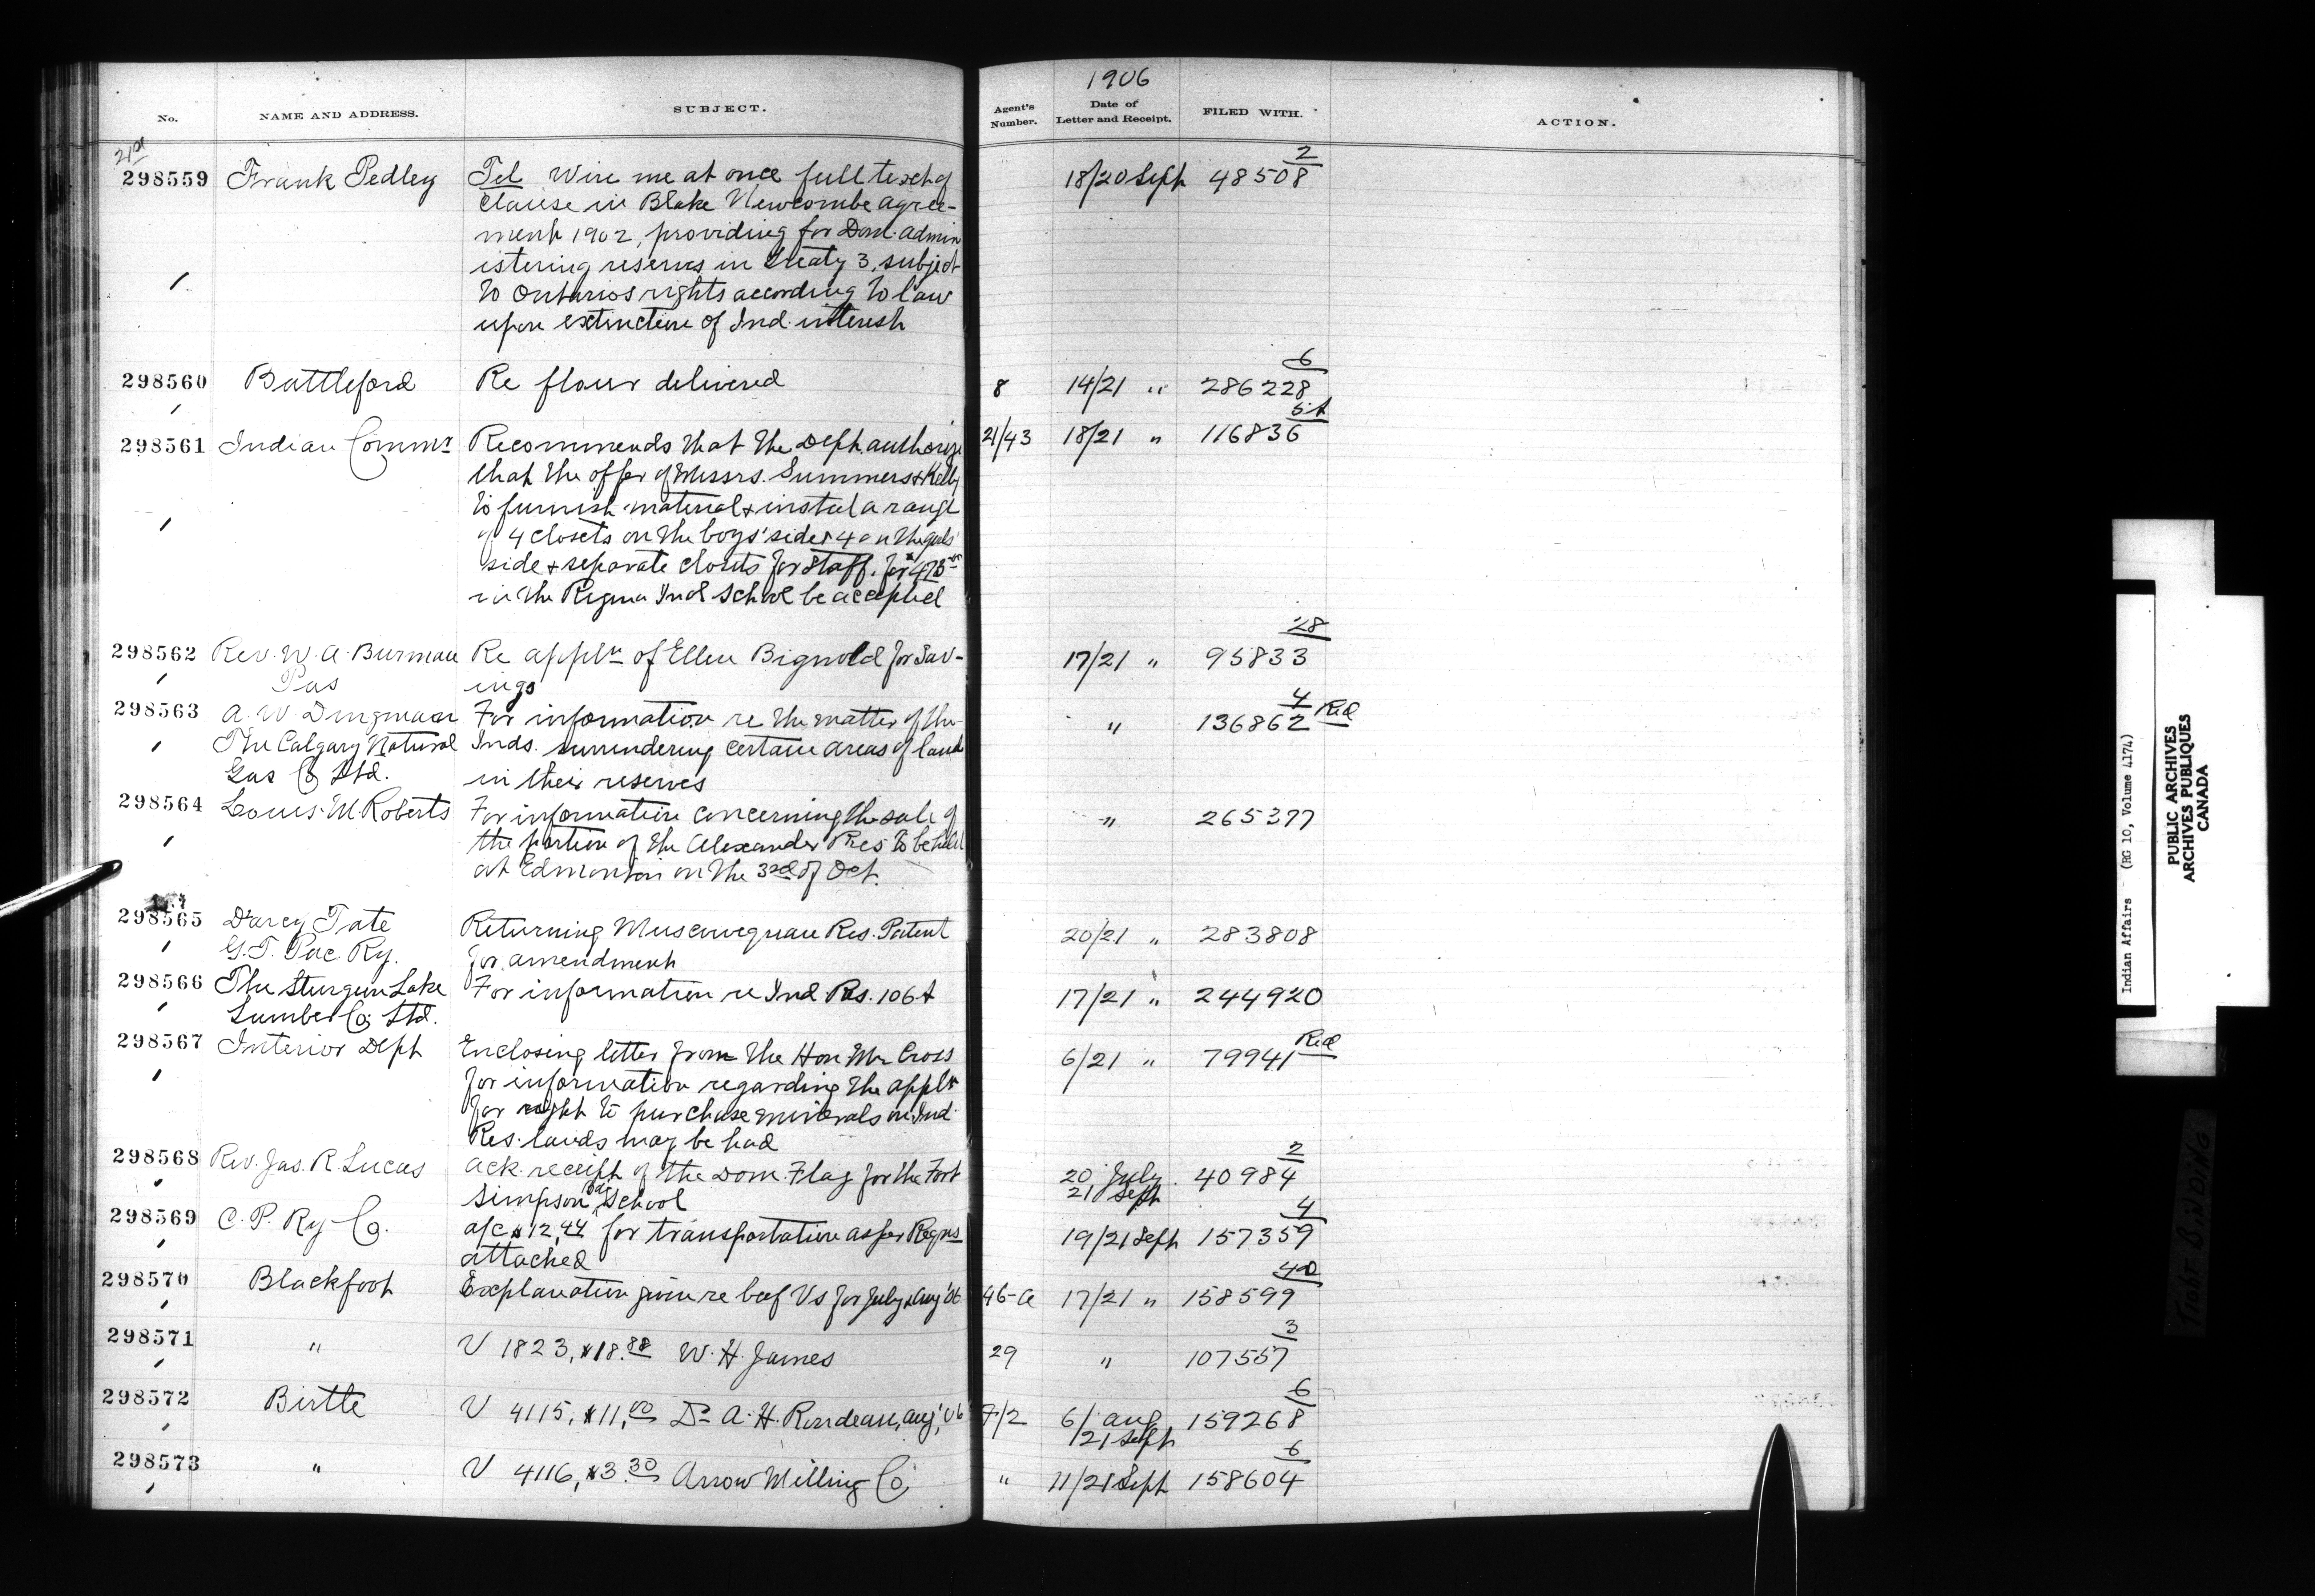 1906
No. NAME AND ADDRESS. SUBJECT. Agent's Number. Date of Letter and Receipt. FILED WITH. ACTION.
21st
298559 Frank Pedley Tel Wire me at once full text of 18/20 Sept 48508 2
clause in Blake Newcombe agree-
ment 1902, providing for Dom. admin
istering reserves in treaty 3, subject
to Ontarios rights according to law
upon extinction of Ind. interest
298560 Battleford Re flour delivered 8 14/21 " 286228 6
298561 Indian Commr Recommends that the Dept. authorize 21/43 18/21 " 116836 5A
that the offer of Messrs. Summers & Kelly
to furnish material & instal a range
of 4 closets on the boys' side & 4 on the girls'
side & separate closets for Staff. for $473
in the Regina Ind School be accepted
298562 Rev. W. A. Burman Re appln of Ellen Bignold for Sav- 17/21 " 95833 28
Pas ings
298563 A. W. Dingman For information re the matter of the " 136862 4 Red
The Calgary Natural Inds. surrendering certain areas of land
Gas Co Ltd. in their reserves
298564 Louis M Roberts For information concerning the sale of " 265377
the portion of the Alexander Res to be held
at Edmonton on the 3rd of Oct.
298565 D'arcy Tate Returning Muscowequan Res. Patent 20/21 " 283808
G. T. Pac. Ry. for amendment
298566 The Sturgeon Lake For information re Ind Res. 106A 17/21 " 244920
Lumber Co Ltd.
298567 Interior Dept Enclosing letter from the Hon Mr Cross 6/21 " 79941 Red
for information regarding the appln
for right to purchase minerals on Ind.
Res. lands may be had
298568 Rev. Jas. R. Lucas Ack. receipt of the Dom. Flag for the Fort 20 July 21 Sept 40984 2
Simpson Day School
298569 C. P. Ry Co. a/c $12.44 for transportation as per Reqns 19/21 Sept 157359 4
attached
298570 Blackfoot Explanation given re beef Vs for July & Aug '06 46-a 17/21 " 158599 40
298571 " V 1823, $18.88 W. H. James 29 " 107557 3
298572 Birtle V 4115, $11.00 Dr A. H. Rondeau, Aug, '06 7/2 6/Aug 159268 6
/21 Sept
298573 " V 4116, $3.30 Arrow Milling Co " 11/21 Sept 158604 6
Indian Affairs (RG 10, Volume 4174)
PUBLIC ARCHIVES
ARCHIVES PUBLIQUES
CANADA
TIGHT BINDING